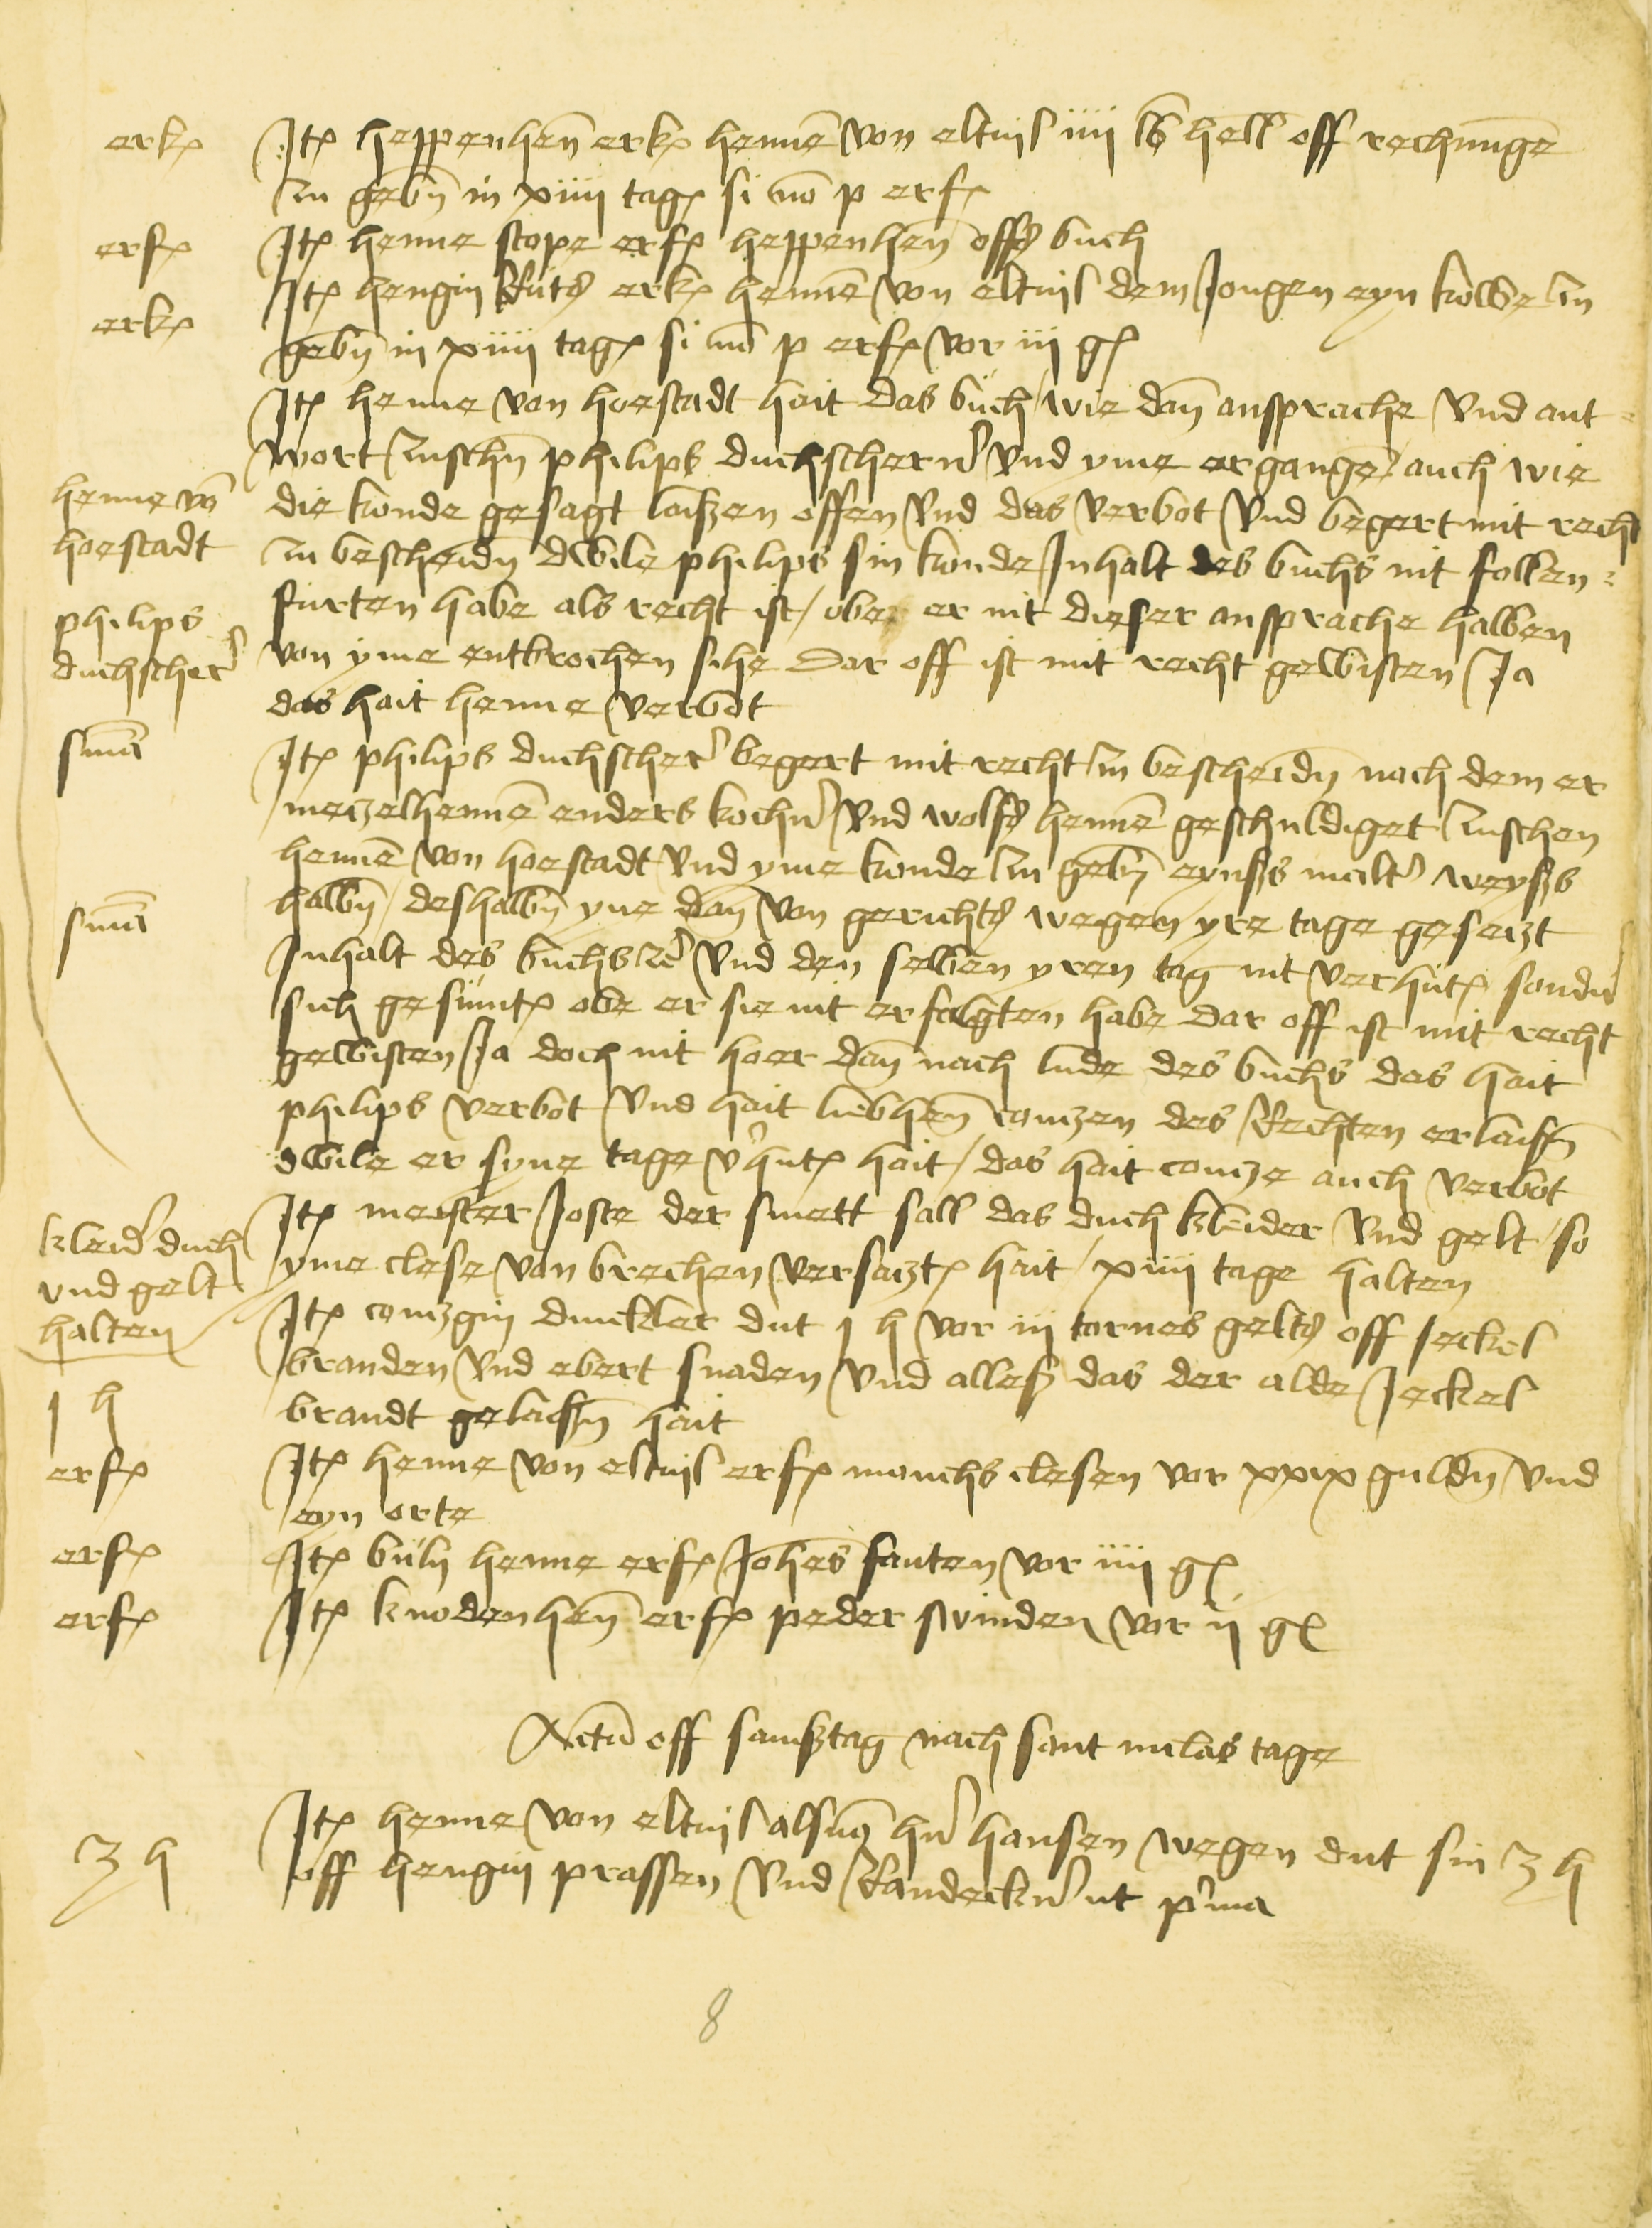 erk
Jt heppenhen erk henne von eltuil iiii lb hell off rechnunge
zu gebn in xiiii tag si no p erf
erf
Jt henne stope erf heppenhen offs buch
erk
Jt hengin erk henne von eltuil dem Jongen eyn kolbe zu
gebn in xiiii tag si no p erf vor iii g
Jt henne von hoestadt hait das buch / wie dan ansprache vnd ant=
wort zuschn philips duchscherer vnd yme ergange / auch wie
henne vo
die konde gesagt laißen offen vnd das verbot vnd begert mit recht
hoestadt
zu bescheidn dwile philips sin konde Jnhalt des buchs nit follen=
philips
furten habe als recht ist / obe er nit dieser ansprache halben
duchscher
von yme entbrochen sihe Dar off ist mit recht gewisten Ja
das hait henne verbot
sma
Jt philips duchscher begert mit recht zu bescheidn nach dem er
metzelhenne enders kochn vnd wolffs henne geschuldiget zuschen
henne von hoestadt vnd yme konde zu gebn eynßs malt weyßs
sma
halbn / deshalbn yne dan von gerichts wegen yre tage gesatzt
Jnhalt des buchs vnd den selben yren tag nit verhut sond
sich gesumt obe er sie nit erfolgten habe Dar off ist mit recht
gewisten Ja doch nit hoer dan nach lude des buchs das hait
philips verbot vnd hait liebhen contzen des Rechten erlaißn
dwile er syne tage v hut hait / das hait contze auch verbot
kleid duch
vnd gelt
halten
Jt meister Joste der smett sall das duch kleider vnd gelt / so
yme clese von brechen versatzt hait / xiiii tage halten
j h
Jt contzgin duckler dut j h vor iii tornes gelts off Jeckel
branden vnd ebert snaden vnd alleß das der alde Jeckel
brandt gelaißn hait
erf
Jt henne von eltuil erf monchs clesen vor xxix guldn vnd
eyn orte
erf
Jt buln henne erf Johes fauten vor iiii g
erf
Jt knodenhen erf peder swinden vor ii g
Actu off samßtag nach sant niclas tage
3 h
Jt henne von eltuil als hn hansen wegen dut sin 3 h
off hengin prassen vnd Randeckn ut pma
8